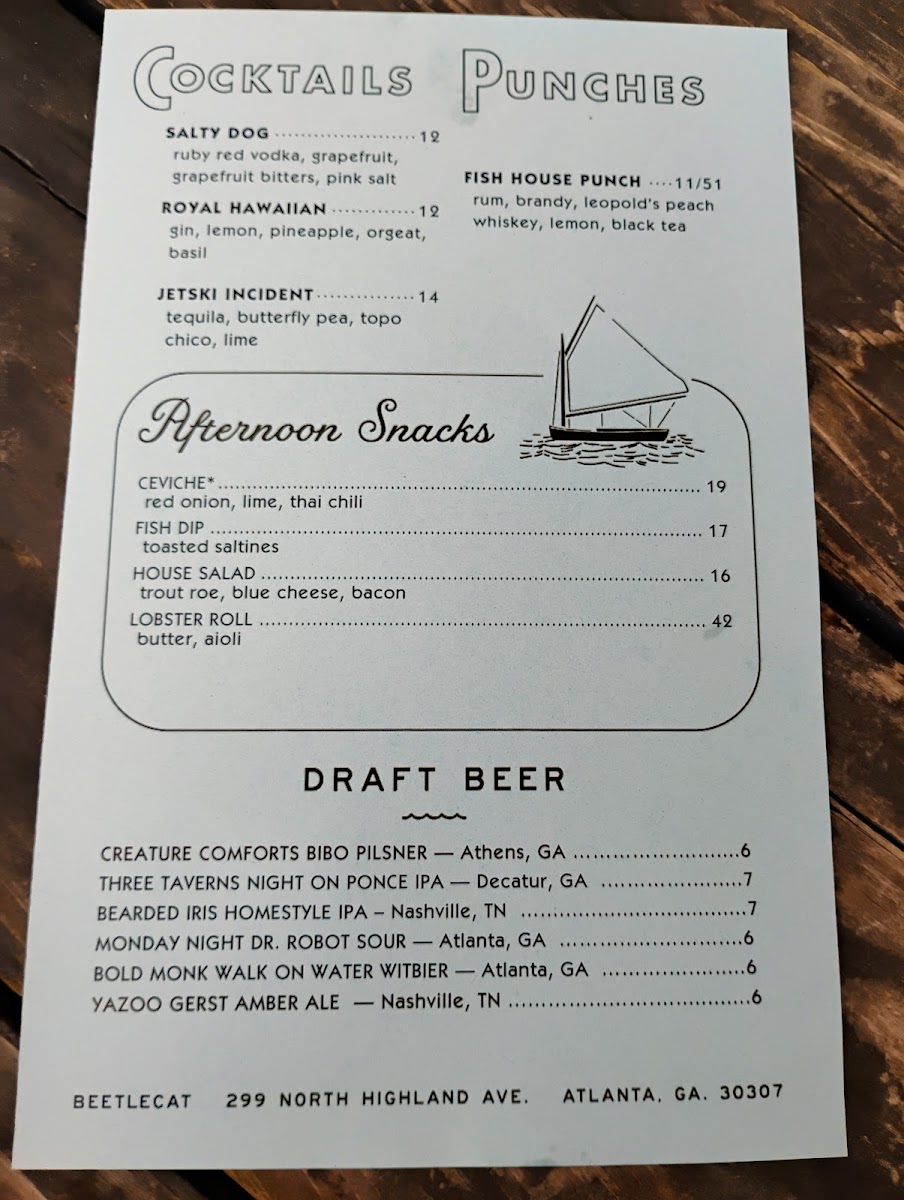 COCKTAILS
SALTY DOG ...................... 12
ruby red vodka, grapefruit,
grapefruit bitters, pink salt
ROYAL HAWAIIAN ............. 12
gin, lemon, pineapple, orgeat,
basil
JETSKI INCIDENT ............... 14
tequila, butterfly pea, topo
chico, lime
PUNCHES
FISH HOUSE PUNCH ....11/51
rum, brandy, leopold's peach
whiskey, lemon, black tea
Afternoon Snacks
CEVICHE* ........................................ 19
red onion, lime, thai chili
FISH DIP ........................................ 17
toasted saltines
HOUSE SALAD ........................................ 16
trout roe, blue cheese, bacon
LOBSTER ROLL ........................................ 42
butter, aioli
DRAFT BEER
CREATURE COMFORTS BIBO PILSNER — Athens, GA ..........................6
THREE TAVERNS NIGHT ON PONCE IPA — Decatur, GA ......................7
BEARDED IRIS HOMESTYLE IPA – Nashville, TN ....................................7
MONDAY NIGHT DR. ROBOT SOUR — Atlanta, GA .............................6
BOLD MONK WALK ON WATER WITBIER — Atlanta, GA ......................6
YAZOO GERST AMBER ALE — Nashville, TN ......................................6
BEETLECAT 299 NORTH HIGHLAND AVE. ATLANTA, GA. 30307